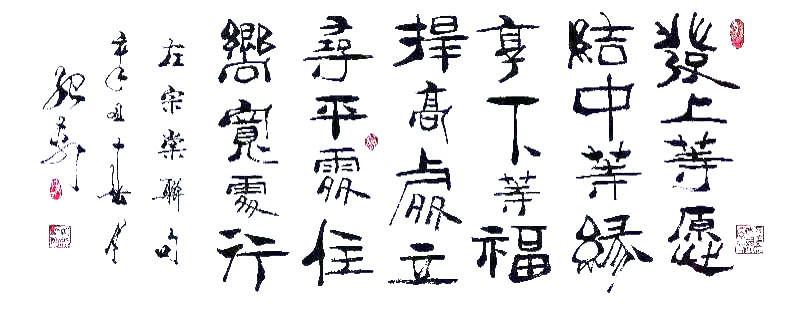 發上等愿
結中等緣
享下等福
擇高處立
尋平處住
嚮寬處行
左宗棠聯句